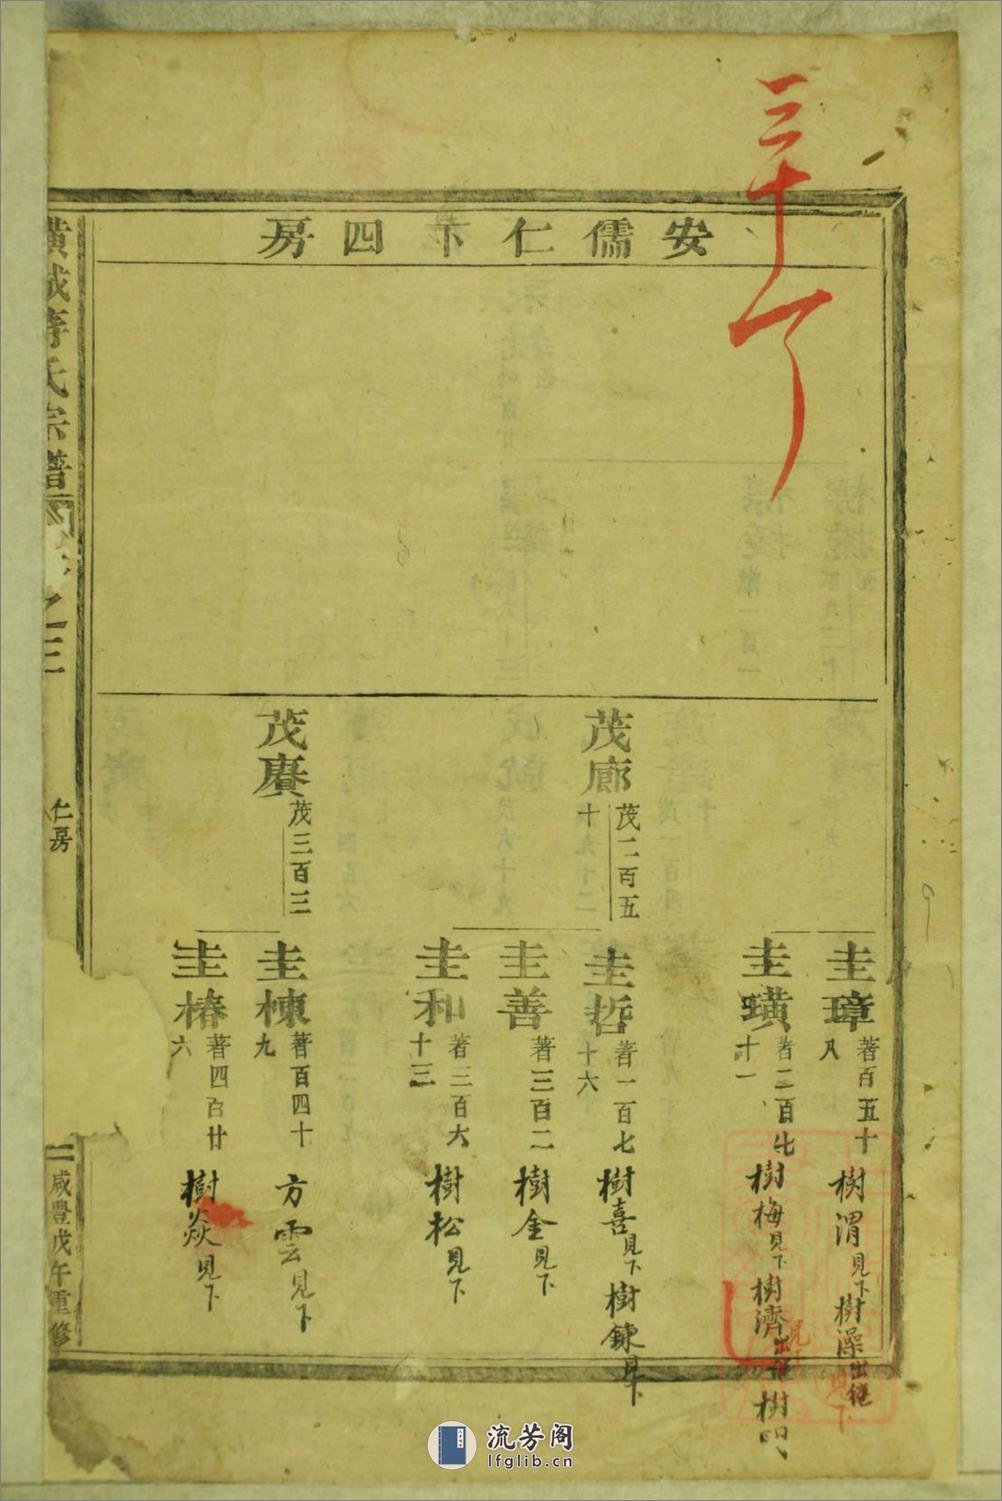 三十一
安儒仁下四房
茂廊
茂二百五
十
茂賡
茂三百三
圭璋
著百五十
八
樹渭見下樹澡出繼
見下
圭璜
著二百七
十一
樹梅見下樹濟出繼樹
見下
圭哲
著一百七
十六
樹喜見下樹鍊見下
圭善
著三百二
樹金見下
圭和
著三百六
十三
樹松見下
圭棟
著百四十
九
方雲見下
圭椿
著四百廿
六
樹焱見下
城蔣氏宗譜
之三
仁房
二
咸豐戊午重修
流芳阁
lfglib.cn